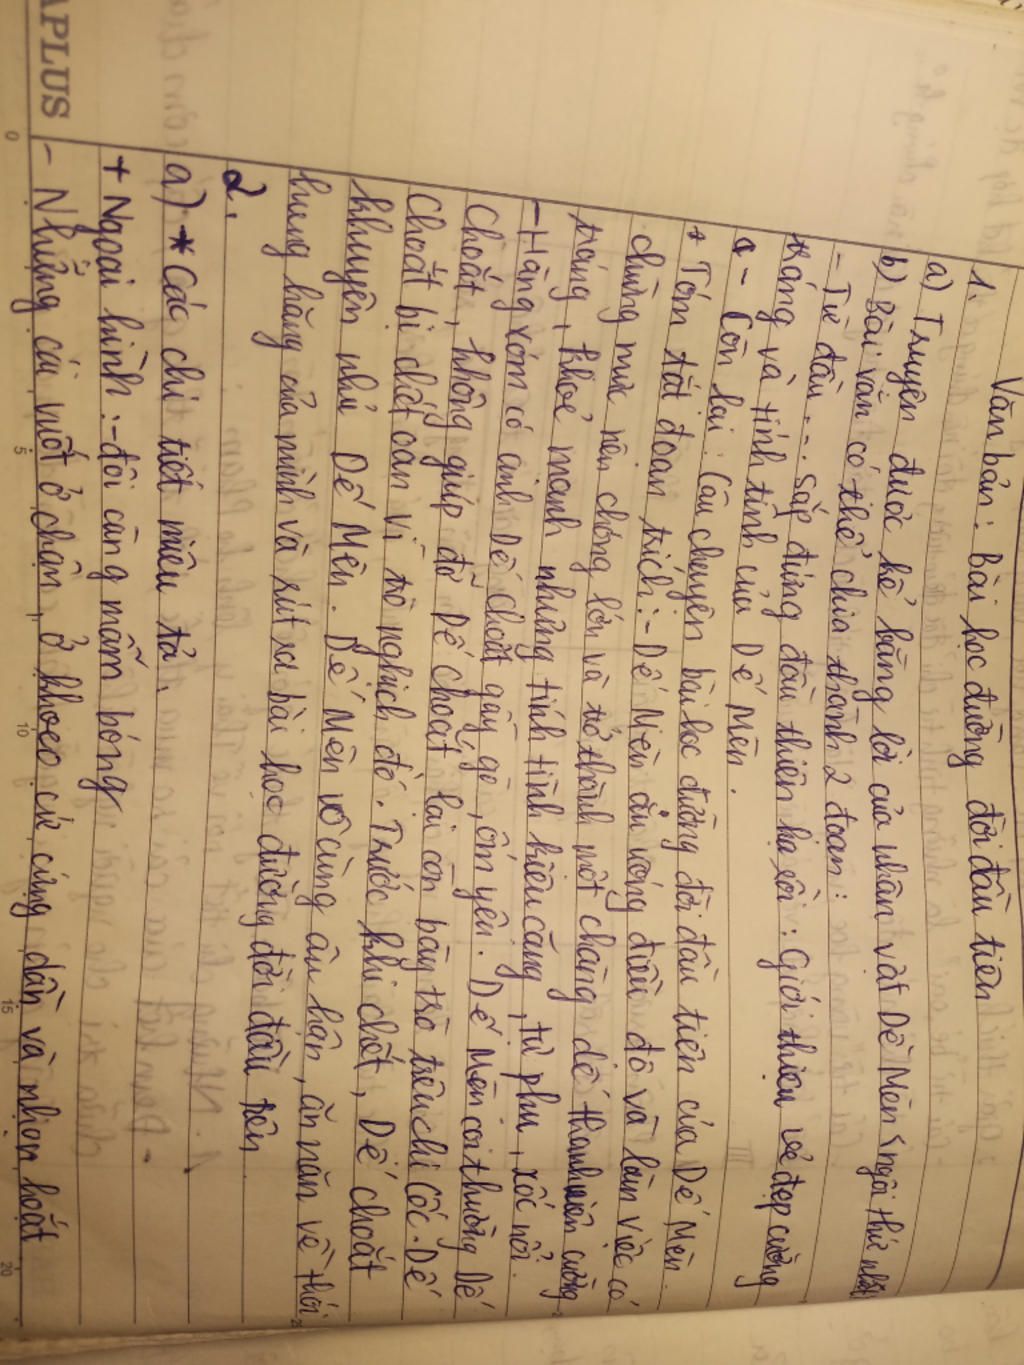 Văn bản: Bài học đường đời đầu tiên
1.
a) Truyện được kể bằng lời của nhân vật Dế Mèn, ngôi thứ nhất
b) Bài văn có thể chia thành 2 đoạn:
- Từ đầu... sắp đứng đầu thiên hạ rồi: Giới thiệu vẻ đẹp cường
tráng và tính tình của Dế Mèn.
- Còn lại: Câu chuyện bài học đường đời đầu tiên của Dế Mèn.
+ Tóm tắt đoạn trích: - Dế Mèn ăn uống điều độ và làm việc có
chừng mực nên chóng lớn và trở thành một chàng dế thanh niên cường
tráng, khoẻ mạnh nhưng tính tình kiêu căng, tự phụ, xốc nổi.
- Hàng xóm có anh Dế Choắt gầy gò, ốm yếu. Dế Mèn coi thường Dế
Choắt, không giúp đỡ Dế Choắt lại còn bày trò trêu chị Cốc. Dế
Choắt bị chết oan vì trò nghịch đó. Trước khi chết, Dế Choắt
khuyên nhủ Dế Mèn. Dế Mèn vô cùng ân hận, ăn năn về thói
hung hăng của mình và rút ra bài học đường đời đầu tiên
2.
a) * Các chi tiết miêu tả.
+ Ngoại hình: - đôi càng mẫm bóng
- Những cái vuốt ở chân, ở khoeo cứ cứng dần và nhọn hoắt
APLUS
0 5 10 15 20